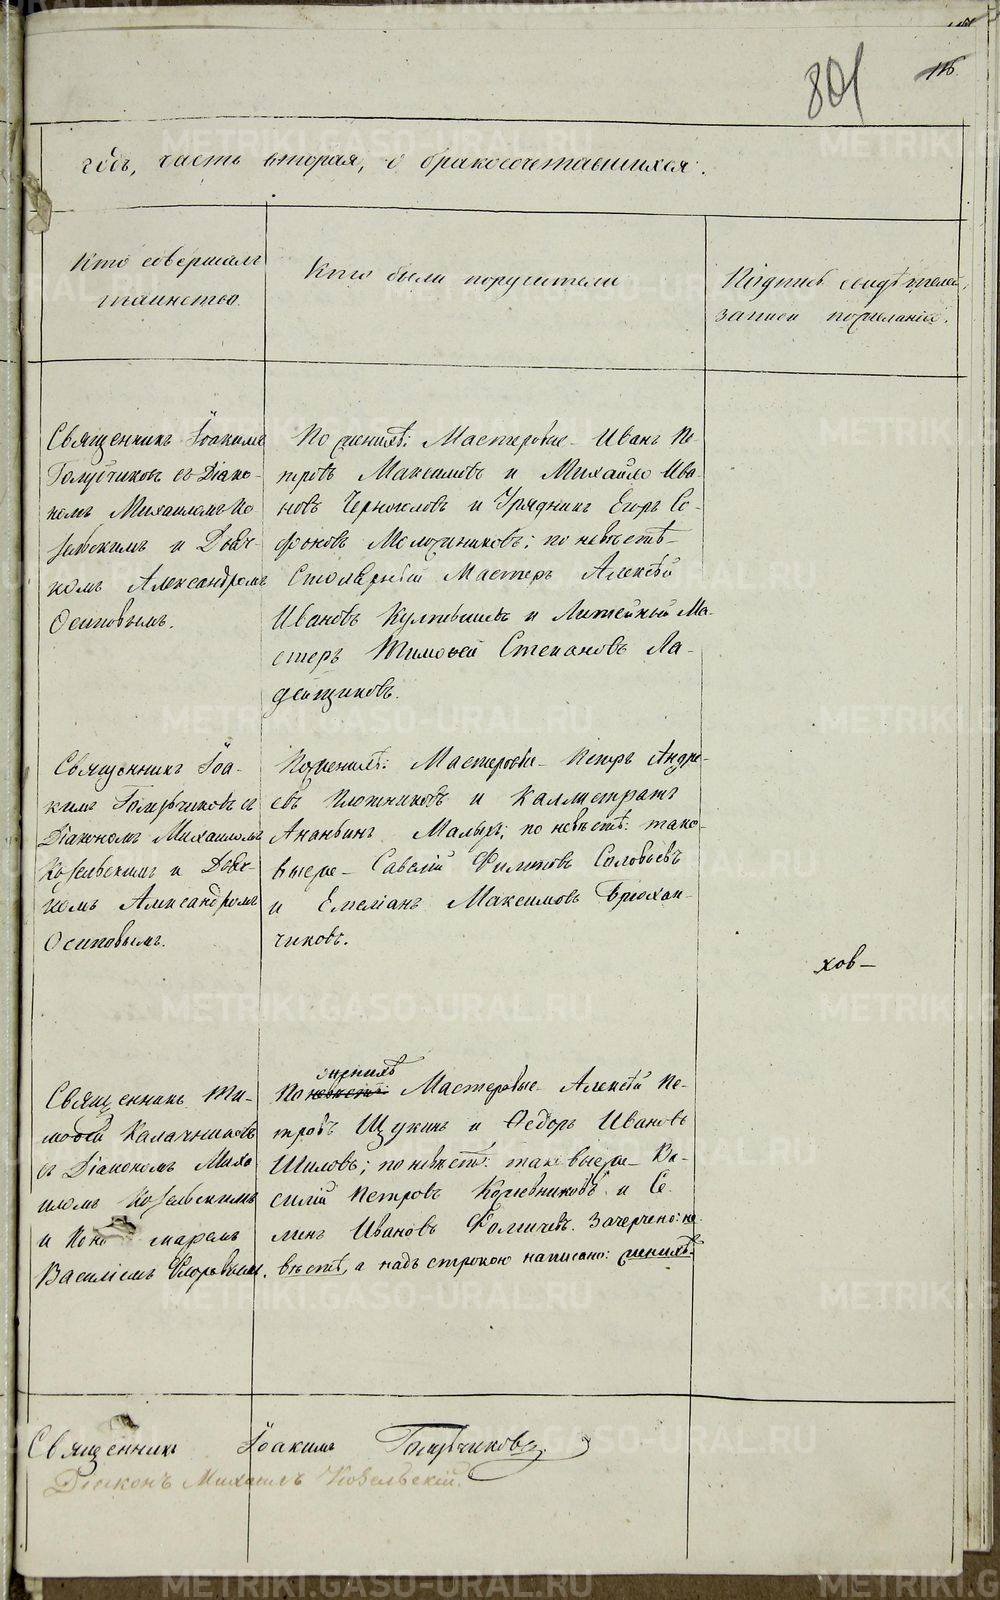 801
116.
годъ, часть вторая, о бракосочетавшихся.
Кто совершалъ
таинство.
Кто были поручители
Подпись свидѣтелей
записи по желанію.
Священникъ Іоакимъ
Голубчиковъ съ Діако-
номъ Михаиломъ Ко
зельскимъ и Дьяч-
комъ Александромъ
Осиповымъ.
По женихѣ: Мастеровые Иванъ Пе
тровъ Максимовъ и Михайло Ива
новъ Черноголовъ и Урядникъ Егоръ Со-
фоновъ Молочниковъ; по невѣстѣ
Столярный Мастеръ Алексѣй
Ивановъ и Литейный Ма-
стеръ Тимоѳей Степановъ Ла-
дейщиковъ.
Священникъ Іоа-
кимъ Голубчиковъ съ
Діакономъ Михаиломъ
Козельскимъ и Дьяч-
комъ Александромъ
Осиповымъ.
По женихѣ: Мастеровые Петръ Андре-
евъ Плотниковъ и Каллистратъ
Ананьинъ Малыхъ; по невѣстѣ: тако-
выеже Савелій Филиповъ Соловьевъ
и Емеліанъ Максимовъ Брюхан-
чиковъ.
хов
Священникъ Ти-
моѳей Калачниковъ
съ Діакономъ Миха
иломъ Козельскимъ
и Поно маремъ
Василіемъ Егоровымъ.
женихѣ
По невѣстѣ: Мастеровые Алексѣй Пе-
тровъ Щукинъ и Ѳедоръ Ивановъ
Шиловъ; по невѣстѣ: таковыеже Ва-
силій Петровъ Кожевниковъ и Се
менъ Ивановъ Фомичевъ. Зачерчено: не
вѣстѣ, а надъ строкою написано: женихѣ.
Священникъ Іоакимъ Голубчиковъ.
Діаконъ Михаилъ Козельскій.
METRIKI.GASO-URAL.RU